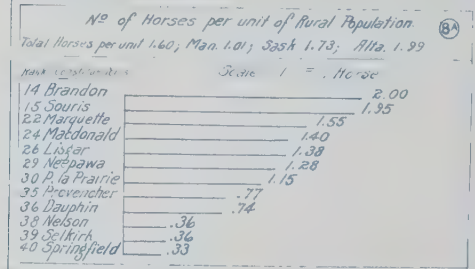 Nº of Horses per unit of Rural Population.
8A
Total Horses per unit 1.60; Man. 1.01; Sask 1.73; Alta. 1.99
Scale 1 = Horse
14 Brandon 2.00
15 Souris 1.95
22 Marquette 1.55
24 Macdonald 1.40
26 Lisgar 1.38
29 Neepawa 1.28
30 P. la Prairie 1.15
35 Provencher .77
36 Dauphin .74
38 Nelson .36
39 Selkirk .36
40 Springfield .33